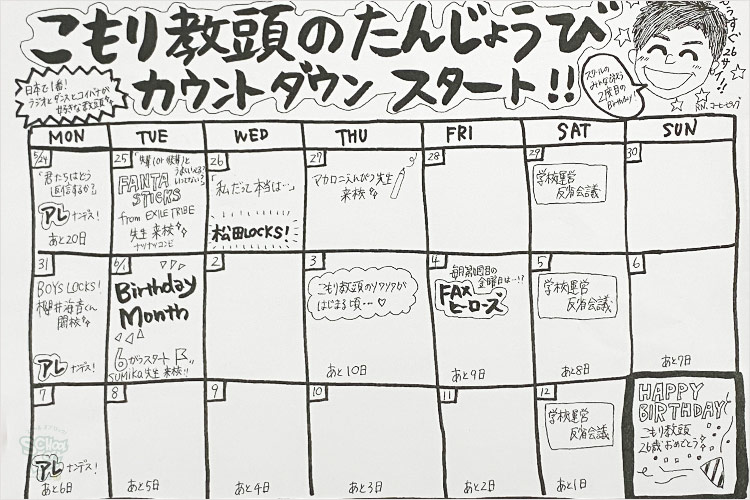 こもり教頭のたんじょうび
カウントダウン スタート!!
日本で1番!
ラジオとダンスとコイバナが
好きな教頭
もうすぐ26サイ!!
スクールの
みんなで祝う
2度目の
Birthday!
MON TUE WED THU FRI SAT SUN
5/24
「君たちはどう
返信するか?」
アレ ナンデス!
あと20日
25
FANTA
STICS
from EXILE TRIBE
先生 来校
ナツナツコンビ
26
「私だって本当は…」
松田LOCKS!
27
マカロニえんぴつ 先生
来校
28
29
学校運営
反省会議
30
31
BOYS LOCKS!
櫻井海音くん
開校
アレ ナンデス!
6/1
Birthday
Month
6がつスタート
SUMIKA 先生 来校!!
2
3
こもり教頭のソワソワが
はじまる頃…
あと10日
4
毎月第1週目の
金曜日は…!?
FAX
ヒーローズ
あと9日
5
学校運営
反省会議
あと8日
6
あと7日
7
アレ ナンデス!
あと6日
8
あと5日
9
あと4日
10
あと3日
11
あと2日
12
学校運営
反省会議
あと1日
HAPPY
BIRTHDAY
こもり教頭
26歳おめでとう